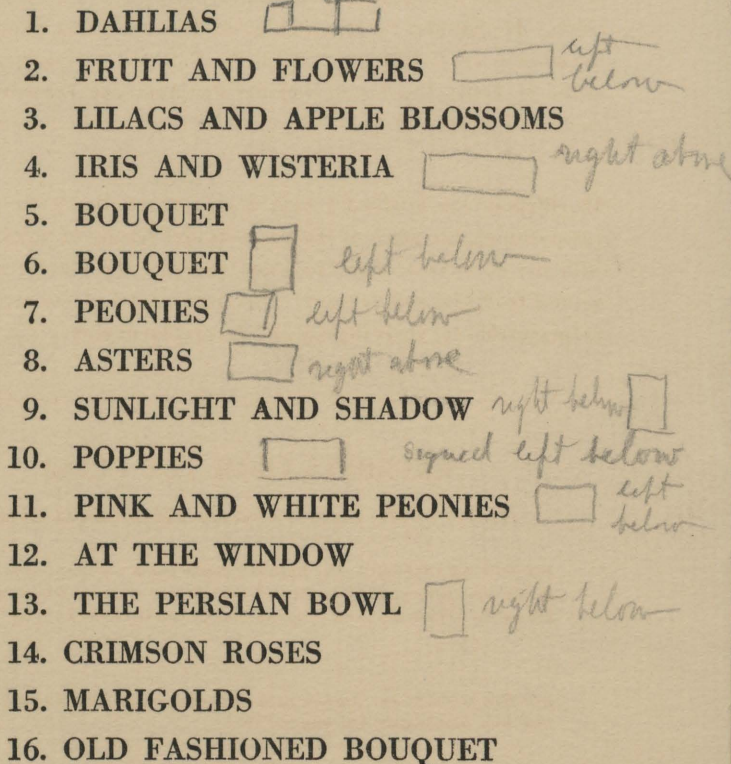 1. DAHLIAS
2. FRUIT AND FLOWERS left below
3. LILACS AND APPLE BLOSSOMS
4. IRIS AND WISTERIA right above
5. BOUQUET
6. BOUQUET left below
7. PEONIES left below
8. ASTERS right above
9. SUNLIGHT AND SHADOW right below
10. POPPIES signed left below
11. PINK AND WHITE PEONIES left below
12. AT THE WINDOW
13. THE PERSIAN BOWL right below
14. CRIMSON ROSES
15. MARIGOLDS
16. OLD FASHIONED BOUQUET